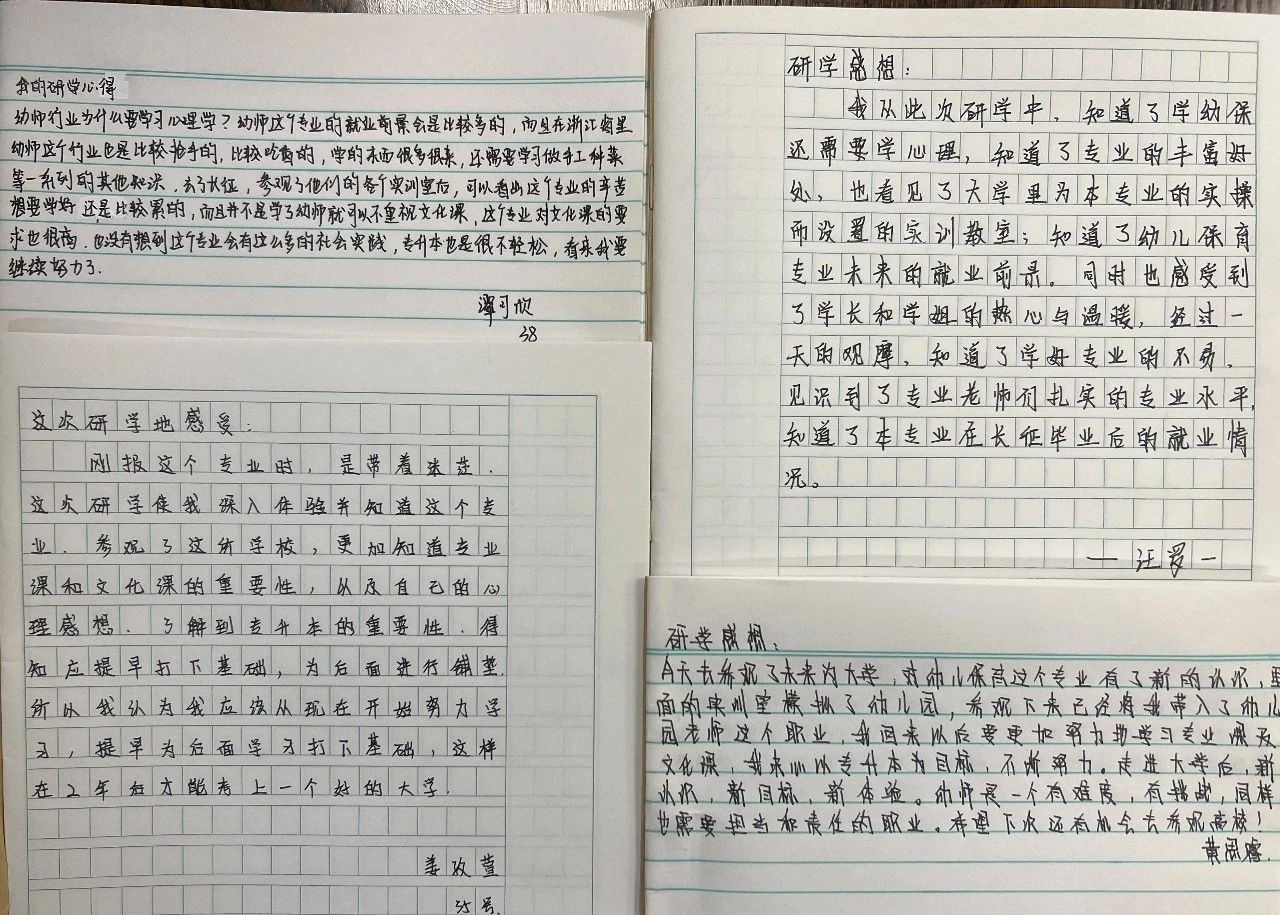 我的研学心得
幼师行业为什么要学习心理学?幼师这个专业的就业前景会是比较多的,而且在浙江省里
幼师这个行业也是比较抢手的,比较吃香的,学的东西很多很杂,还需要学习做手工种菜
等一系列的其他知识,去了长征,参观了他们的各个实训室后,可以看出这个专业的辛苦
想要学好还是比较累的,而且并不是学了幼师就可以不重视文化课,这个专业对文化课的要
求也很高,也没有想到这个专业会有这么多的社会实践,专升本也是很不轻松,看来我要
继续努力了.
谭可欣
38
这次研学地感受:
刚报这个专业时,是带着迷茫.
这次研学使我深入体验并知道这个专
业.参观了这所学校,更加知道专业
课和文化课的重要性,以及自己的心
理感想.了解到专升本的重要性.得
知应提早打下基础,为后面进行铺垫.
所以我认为我应该从现在开始努力学
习,提早为后面学习打下基础,这样
在2年后才能考上一个好的大学.
姜玫萱
35号.
研学感想:
我从此次研学中,知道了学幼保
还需要学心理,知道了专业的丰富好
处,也看见了大学里为本专业的实操
而设置的实训教室;知道了幼儿保育
专业未来的就业前录。同时也感受到
了学长和学姐的热心与温暖,经过一
天的观摩,知道了学好专业的不易,
见识到了专业老师们扎实的专业水平,
知道了本专业在长征毕业后的就业情
况。
—汪罗一
研学感想:
今天去参观了未来的大学,对幼儿保育这个专业有了新的认识,里
面的实训室模拟了幼儿园,参观下来已经将我带入了幼儿
园老师这个职业,我回来以后要更加努力地学习专业课及
文化课,我决心以专升本为目标,不断努力。走进大学后,新
认识,新目标,新体验。幼师是一个有难度,有挑战,同样
也需要担当和责任的职业。希望下次还有机会去参观高校!
黄思睿.